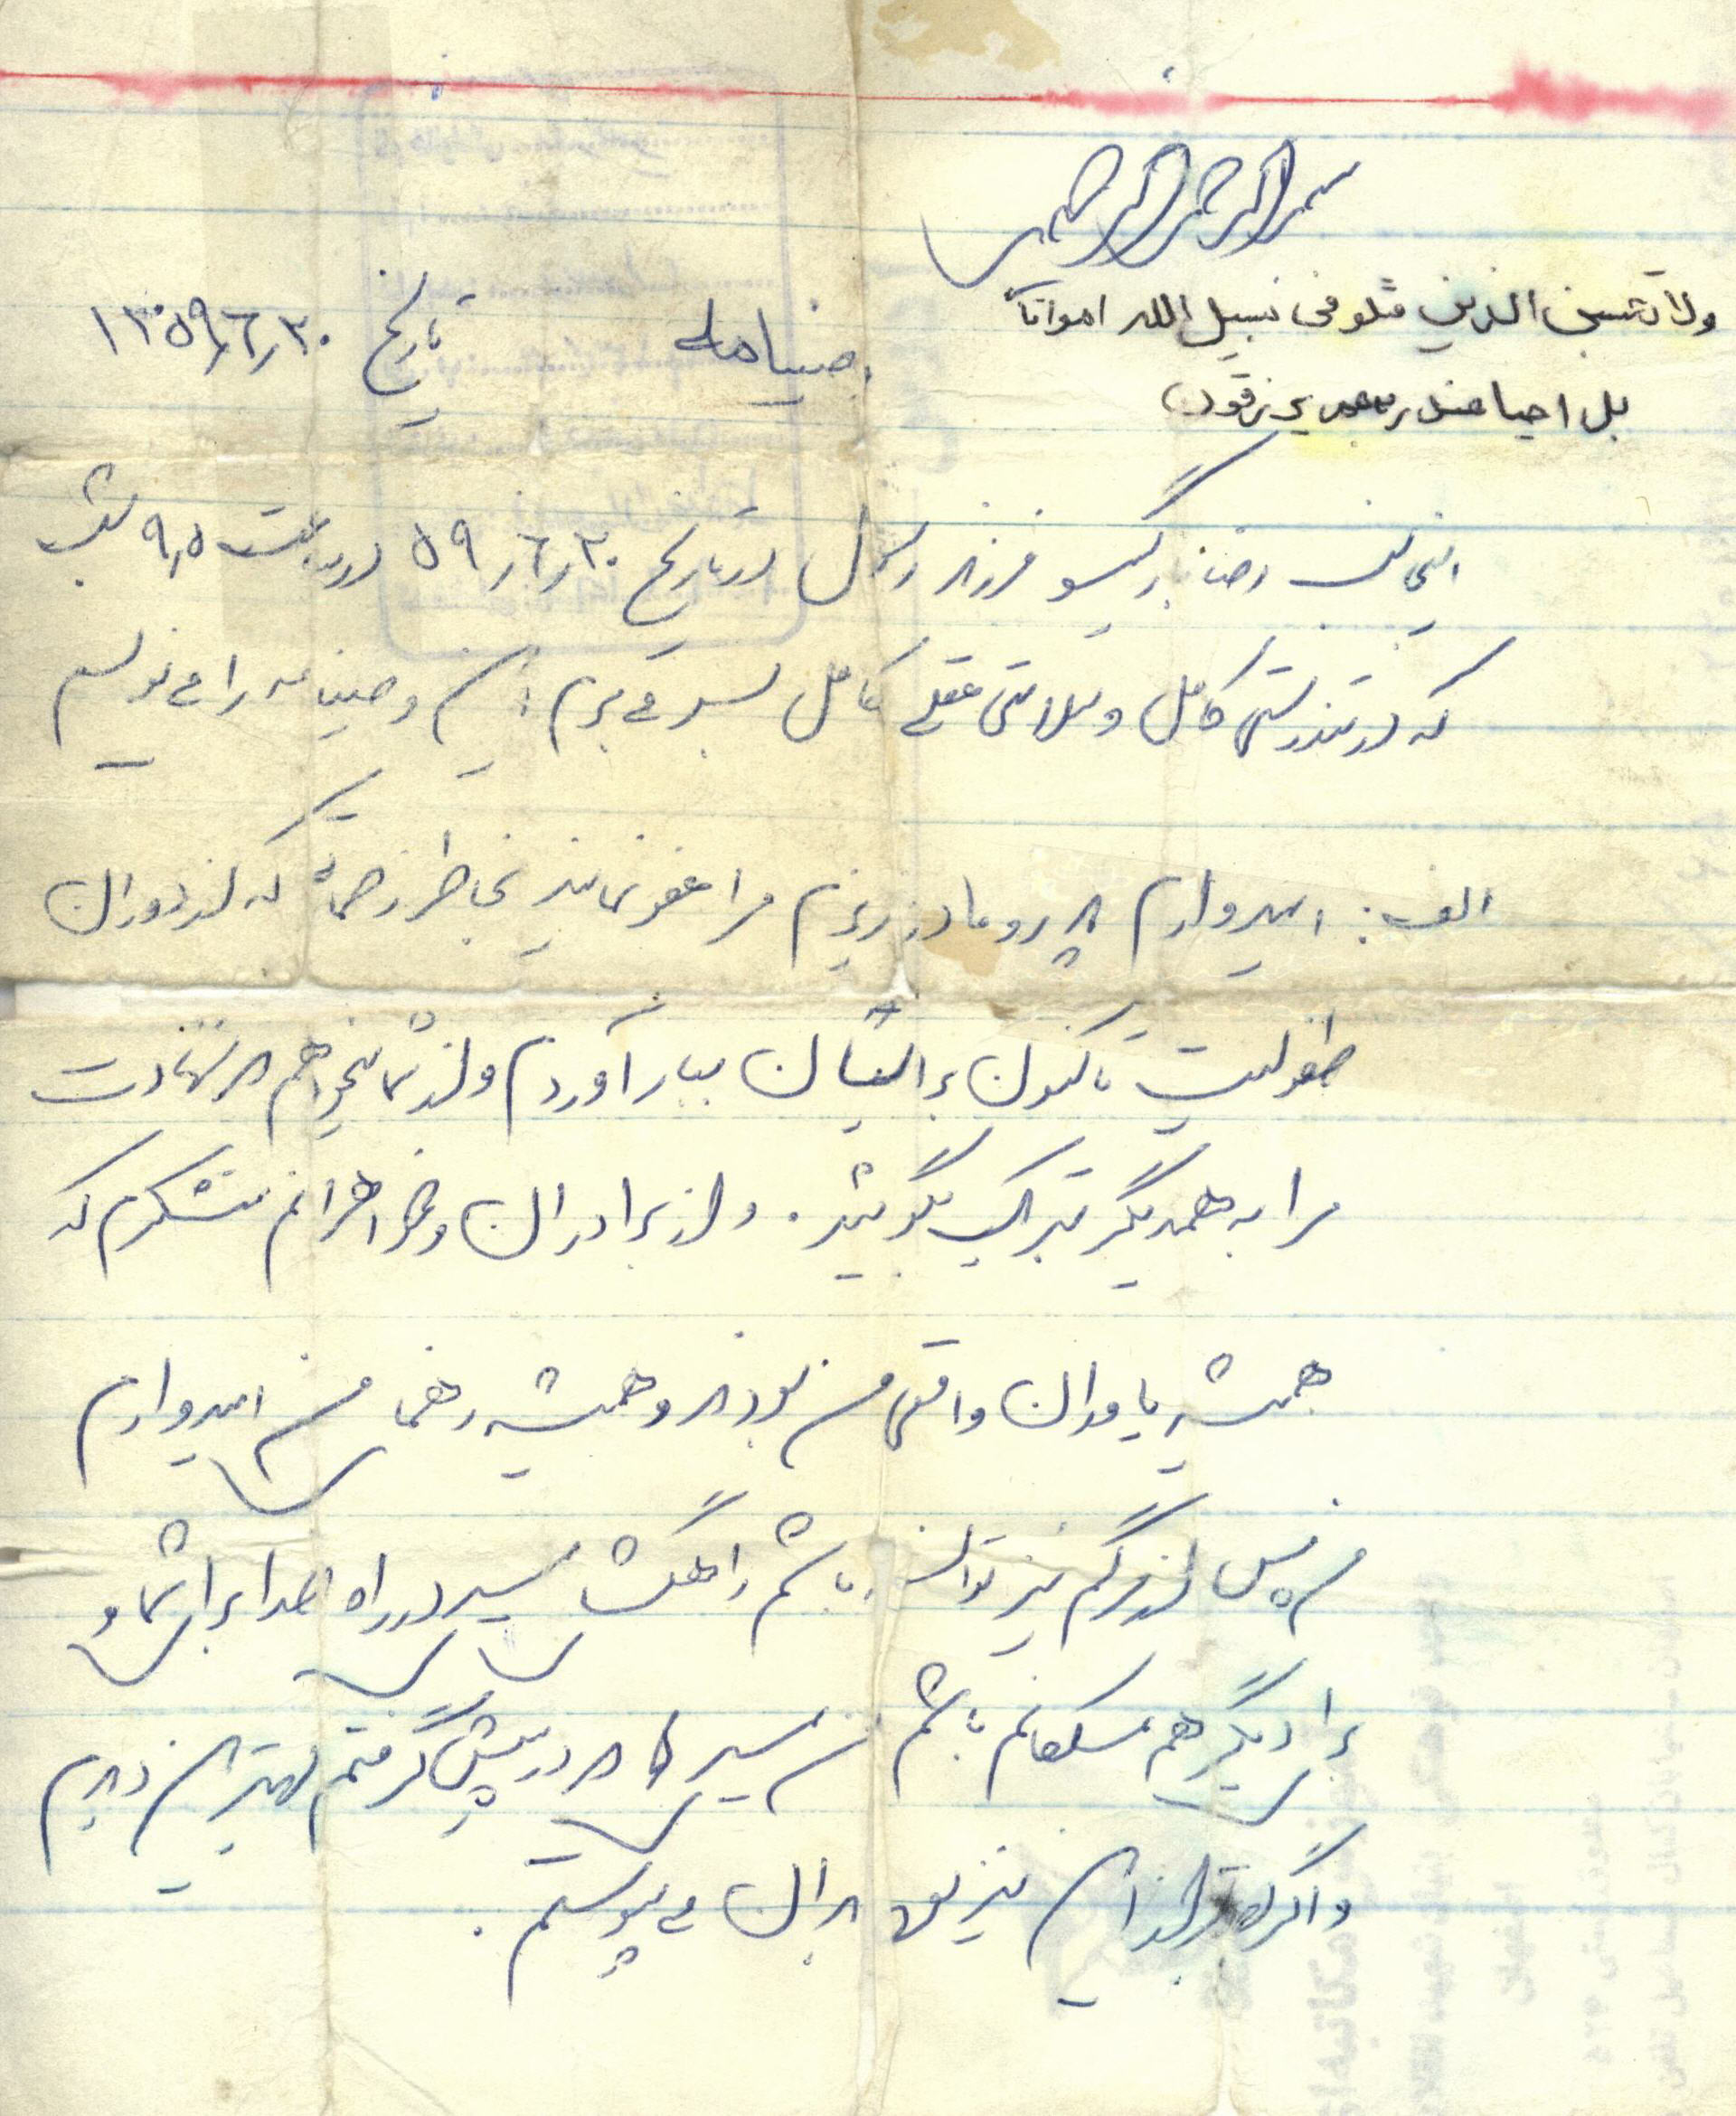 بسم الله الرحمن الرحیم
ولا تحسبن الذین قتلو فی سبیل الله امواتاً
بل احیا عند ربهم یرزقون
وصیتنامه تاریخ ۱۳۵۹/۶/۳۰
اینجانب رضا فرزند رسول در تاریخ ۵۹/۶/۳۰ در ساعت ۹٫۵ شب
که در تندرستی کامل و سلامتی عقلی کامل بسر می برم این وصیتنامه را می نویسم
الف: امیدوارم پدر و مادر عزیزم مرا عفو نمایند بخاطر زحماتی که از دوران
طفولیت تاکنون برایشان ببار آوردم و از شما میخواهم که شهادت
مرا به همدیگر تبریک بگوئید. و از برادران و خواهرانم متشکرم که
همیشه یاوران واقعی من بودند و همیشه رهنمای من امیدوارم
من پس از مرگم نیز توانسته باشم راهگشای مسیر در راه خدا برای شما و
برای دیگر هم مسلکانم باشم من مسیری که در پیش گرفتم بهتر از آن ندیدم
و اگر بهتر از این نیز بود بدان می پیوستم.